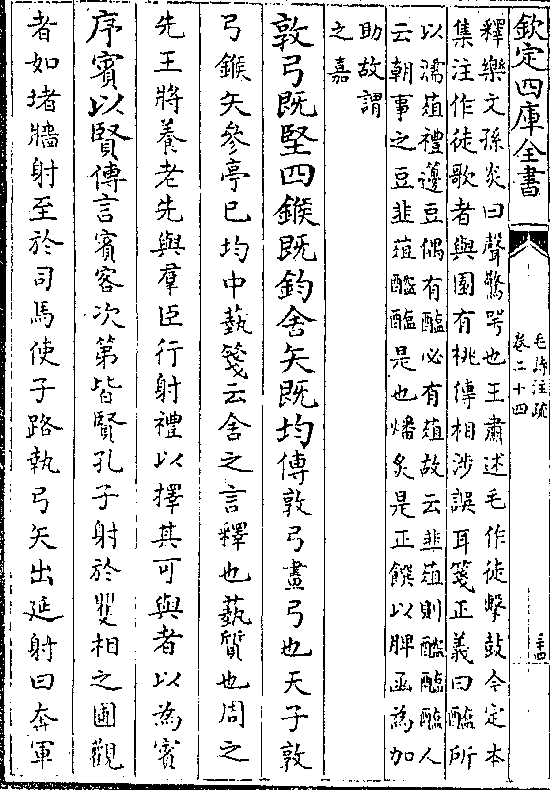 欽定四庫全書
毛詩注疏
卷二十四
釋樂文孫炎曰聲驚咢也王肅述毛作徒擊鼓今定本
集注作徒歌者與園有桃傳相涉誤耳箋正義曰醢所
以濡菹禮籩豆偶有醢必有菹故云韭菹則醓醢醢人
云朝事之豆韭菹醓醢是也燔炙是正饌以脾函為加
助故謂
之嘉
敦弓既堅四鍭既鈞舍矢既均傳敦弓畫弓也天子敦
弓鍭矢參亭已均中蓺箋云舍之言釋也蓺質也周之
先王將養老先與羣臣行射禮以擇其可與者以為賓
序賓以賢傳言賓客次第皆賢孔子射於矍相之圃觀
者如堵牆射至於司馬使子路執弓矢出延射曰奔軍